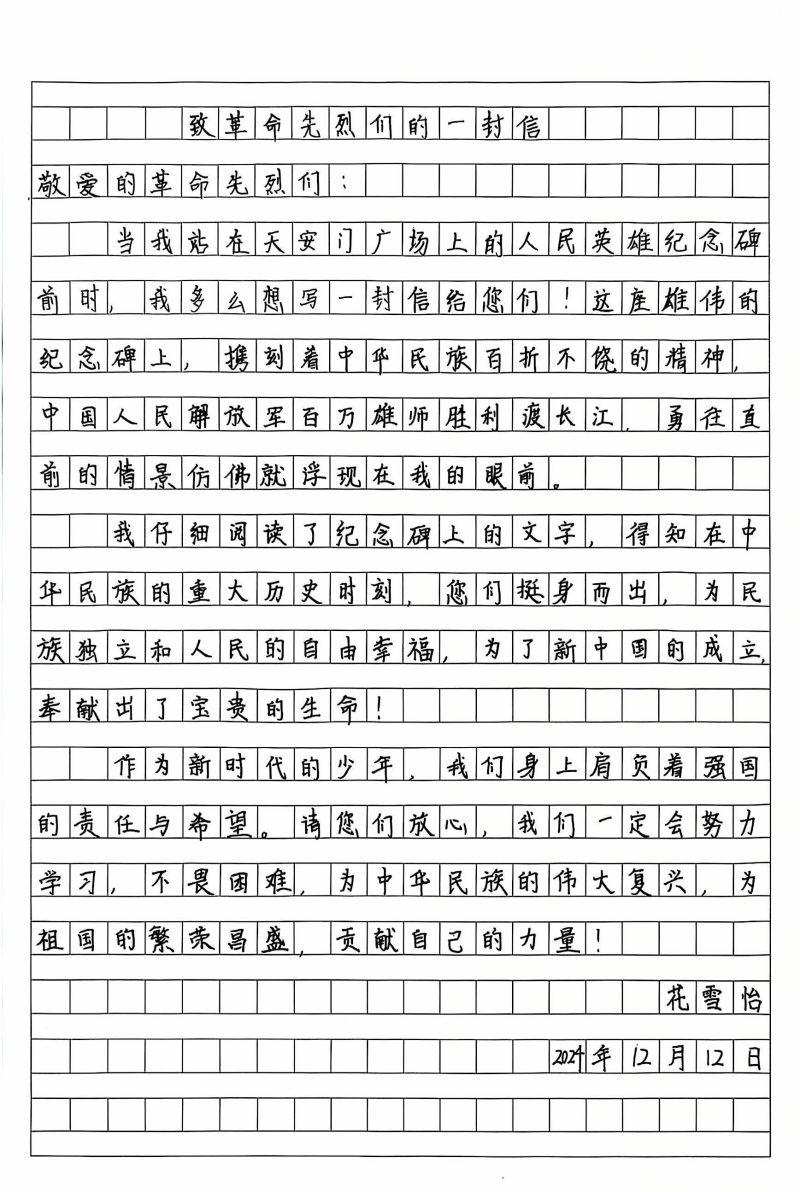 致革命先烈们的一封信
敬爱的革命先烈们：
当我站在天安门广场上的人民英雄纪念碑
前时，我多么想写一封信给您们！这座雄伟的
纪念碑上，携刻着中华民族百折不饶的精神，
中国人民解放军百万雄师胜利渡长江，勇往直
前的情景仿佛就浮现在我的眼前。
我仔细阅读了纪念碑上的文字，得知在中
华民族的重大历史时刻，您们挺身而出，为民
族独立和人民的自由幸福，为了新中国的成立，
奉献出了宝贵的生命！
作为新时代的少年，我们身上肩负着强国
的责任与希望。请您们放心，我们一定会努力
学习，不畏困难，为中华民族的伟大复兴，为
祖国的繁荣昌盛，贡献自己的力量！
花雪怡
2024年12月12日